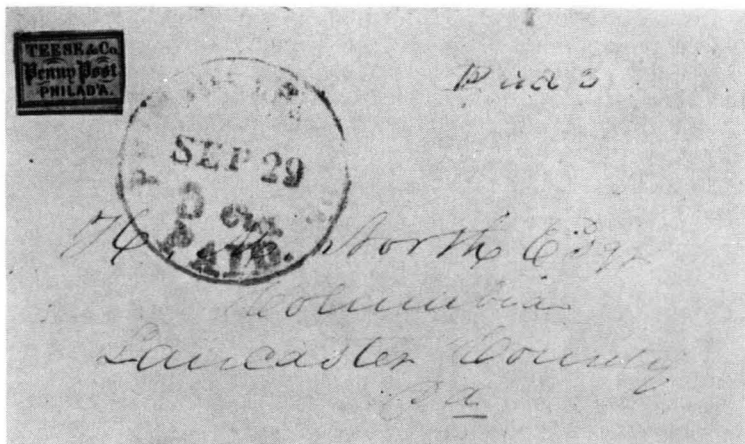 TEESE & Co.
Penny Post
PHILAD'A.
Paid 3
SEP 29
3 cts
PAID.
H. M. North Esqr
Columbia
Lancaster County
Pa